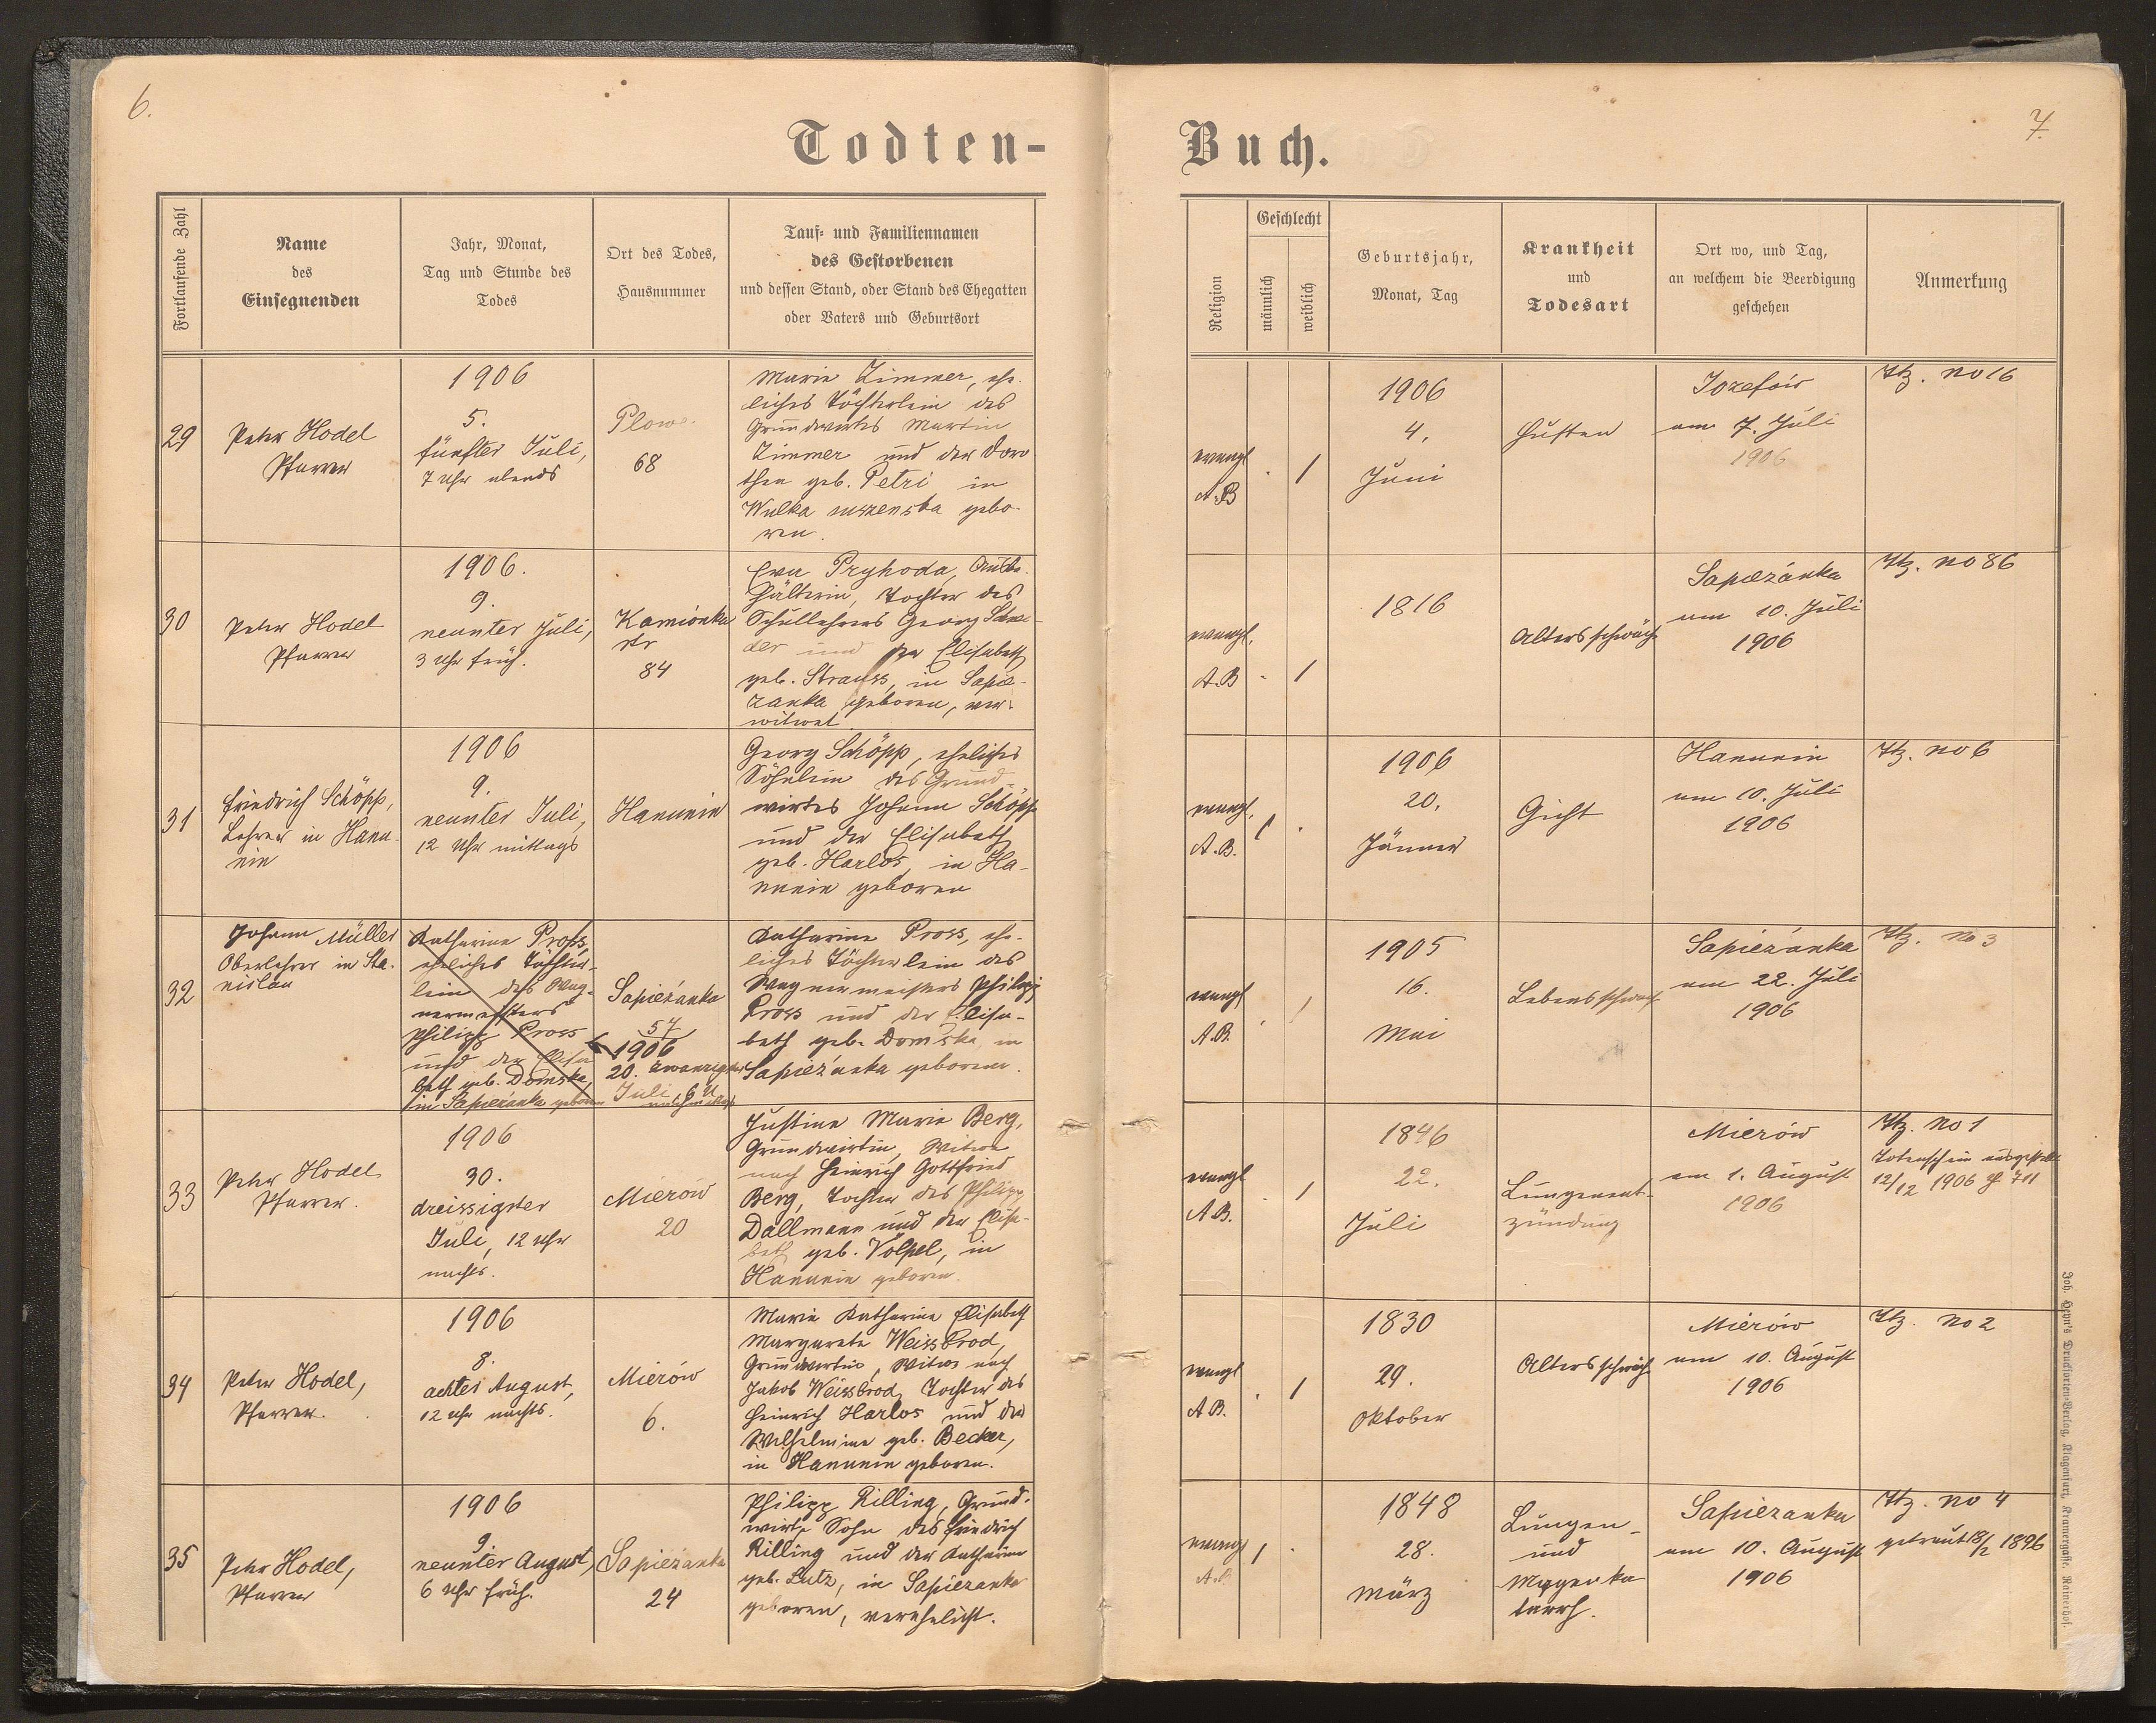 6.
7.
Todten-
Buch.
Fortlaufende Zahl
Name
des
Einsegnenden
Jahr, Monat,
Tag und Stunde des
Todes
Ort des Todes,
Hausnummer
Tauf- und Familiennamen
des Gestorbenen
und dessen Stand, oder Stand des Ehegatten
oder Vaters und Geburtsort
Religion
Geschlecht
männlich
weiblich
Geburtsjahr,
Monat, Tag
Krankheit
und
Todesart
Ort wo, und Tag,
an welchem die Beerdigung
geschehen
Anmerkung
29
Peter Hodel
Pfarrer
1906
5.
fünfter Juli,
7 Uhr abends
Plowe
68
Marie Zimmer, ehe-
liches Töchterlein des
Grundwirtes Martin
Zimmer und der Doro-
thea geb. Petri in
Wulka suszenska gebo-
ren.
evangl
A.B
.
1
1906
4.
Juni
Husten
Jozefów
am 7. Juli
1906
Itz. no 16
30
Peter Hodel
Pfarrer
1906.
9.
neunter Juli,
3 Uhr früh.
Kamionka
str
84
Eva Pryhoda,
hälterin, Tochter des
Schullehrers Georg
der und der Elisabeth
geb. Strauss, in Sapie-
zanka geboren, ver-
witwet
evangl.
A.B
.
1
1816
Altersschwäche
Sapiezánka
am 10. Juli
1906
Itz. no 86
31
Friedrich Schöpp,
Lehrer in Hanu-
nin
1906
9.
neunter Juli,
12 Uhr mittags
Hanunin
Georg Schöpp, eheliches
Söhnlein des Grund-
wirtes Johann Schöpp
und der Elisabeth
geb. Harlos, in Ha-
nunin geboren
evangl.
A.B.
1
.
1906
20.
Jänner
Gicht
Hanunin
am 10. Juli
1906
Itz. no 6
32
Johann Müller
Oberlehrer in Sta-
nislau
Katharine Pross,
eheliches Töchter-
lein des Wag-
nermeisters
Philipp Pross
und der Elisa
beth geb. Domska,
in Sapiezanka geboren
Sapieżanka
57
1906
20. zwanzigster
Juli, 6 U
nachmittags
Katharine Pross, ehe-
liches Töchterlein des
Wagnermeisters Philipp
Pross und der Elisa-
beth geb. Domska, in
Sapieżanka geboren.
evangl
A.B.
.
1
1905
16.
Mai
Lebensschwach
Sapieżanka
am 22. Juli
1906
Itz. no 3
33
Peter Hodel
Pfarrer.
1906
30.
dreissigster
Juli, 12 Uhr
nachts.
Mierów
20
Justine Marie Berg,
Grundwirtin, Witwe
nach Heinrich Gottfried
Berg, Tochter des Philipp
Dallmann und der Elisa-
beth geb. Völpel, in
Hanunin geboren.
evangl
A.B.
.
1
1846
22.
Juli
Lungenent-
zündung
Mierów
am 1. August
1906
Itz. no 1
Totenschein ausgestellt
12/12 1906 711
34
Peter Hodel,
Pfarrer.
1906
8.
achter August,
12 Uhr nachts.
Mierów
6.
Marie Katharine Elisabeth
Margarete Weissbrod,
Grundwirtin, Witwe nach
Jakob Weissbrod, Tochter des
Heinrich Harlos und der
Wilhelmine geb. Becker,
in Hanunin geboren.
evangl
A.B.
.
1
1830
29.
Oktober
Altersschwäche
Mierów
am 10. August
1906
Itz. no 2
35
Peter Hodel,
Pfarrer
1906
9.
neunter August,
6 Uhr früh.
Sapieżanka
24
Philipp Rilling, Grund-
wirt, Sohn des Friedrich
Rilling und der Katharine
geb. Lutz, in Sapiezanka
geboren, verehelicht.
evangl
A.B.
1
.
1848
28.
März
Lungen-
und
Magenka
tarrh.
Sapiezanka
am 10. August
1906
Itz. no 4
getraut 18/2 1896
Joh. Heyn's Drucksorten-Verlag, Klagenfurt, Kramergasse, Rainerhof.